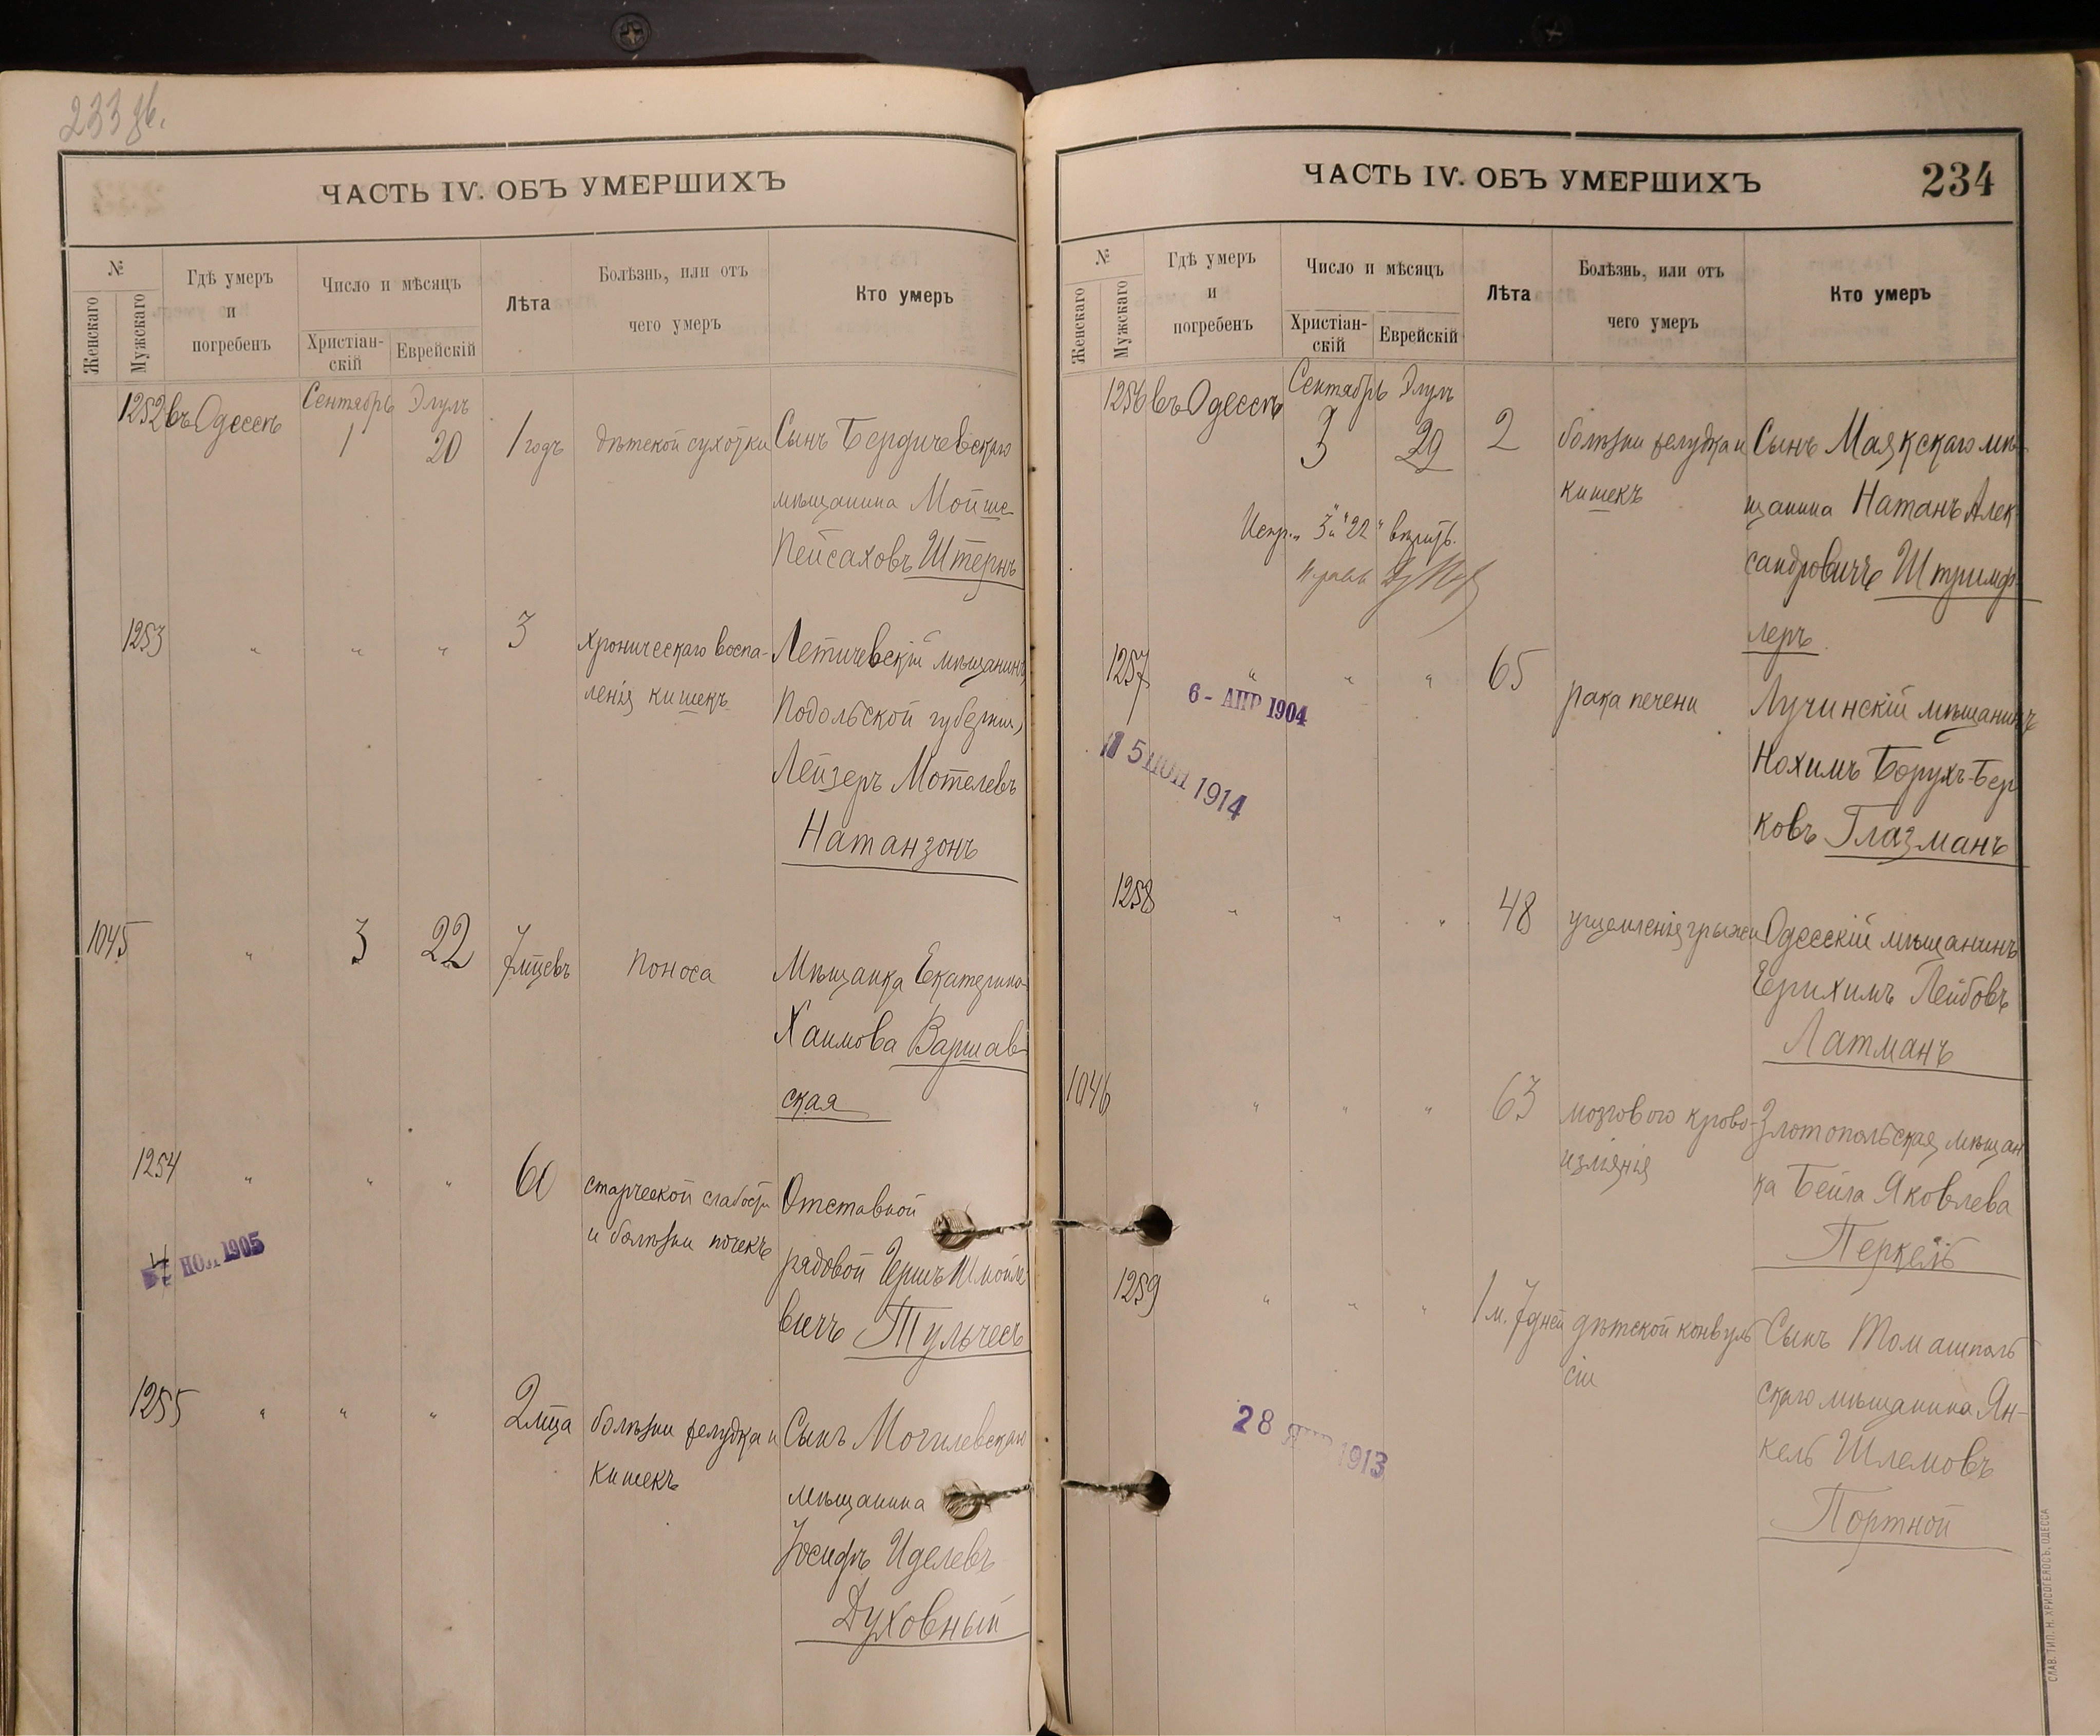 233 об.
ЧАСТЬ IV. ОБЪ УМЕРШИХЪ
№
Женскаго
Мужскаго
Гдѣ умеръ
и
погребенъ
Число и мѣсяцъ
Христіан-
скій
Еврейскій
Лѣта
Болѣзнь, или отъ
чего умеръ
Кто умеръ
1252 въ Одессѣ Сентябрь 1 Элулъ 20 1 годъ дѣтской сухотки Сынъ Бердичевскаго
мѣщанина Мойше
Пейсаховъ Штернъ
1253 " " " 3 хроническаго воспа- Летичевскій мѣщанинъ,
ленія кишекъ Подольской губерніи,
Лейзеръ Мотелевъ
Натанзонъ
1045 " 3 22 7 мцевъ поноса Мѣщанка Екатерина
Хаимова Варшав-
ская
1254 " " " 60 старческой слабости Отставной
и болѣзни почекъ рядовой Гершъ Шмойле
вичъ Тульчесъ
НОЯ 1905
1255 " " " 2 мца болѣзни желудка и Сынъ Могилевскаго
кишекъ мѣщанина
Іосифъ Иделевъ
Духовный
ЧАСТЬ IV. ОБЪ УМЕРШИХЪ
234
№
Женскаго
Мужскаго
Гдѣ умеръ
и
погребенъ
Число и мѣсяцъ
Христіан-
скій
Еврейскій
Лѣта
Болѣзнь, или отъ
чего умеръ
Кто умеръ
1256 въ Одессѣ Сентябрь 3 Элулъ 22 2 болѣзни желудка и Сынъ Маякскаго мѣ-
кишекъ щанина Натанъ Алек
сандровичъ Штримф-
леръ
Испр. "3" и "22" вѣрить.
1257 " " " 65 рака печени Лучинскій мѣщанинъ
Нохимъ Борухъ-Бер
ковъ Глазманъ
6 - АПР 1904
1914
1258 " " " 48 ущемленія грыжи Одесскій мѣщанинъ
Ерихимъ Лейбовъ
Латманъ
1046 " " " 63 мозгового крово- Златопольская мѣщан
изліянія ка Бейла Яковлева
Перкель
1259 " " " 1 м. 7 дней дѣтской конвуль Сынъ Томашполь
сіи скаго мѣщанина Ян-
кель Шлемовъ
Портной
28 ЯНВ 1913
СЛАВ. ТИП. Н. ХРИСОГЕЛОСЪ, ОДЕССА